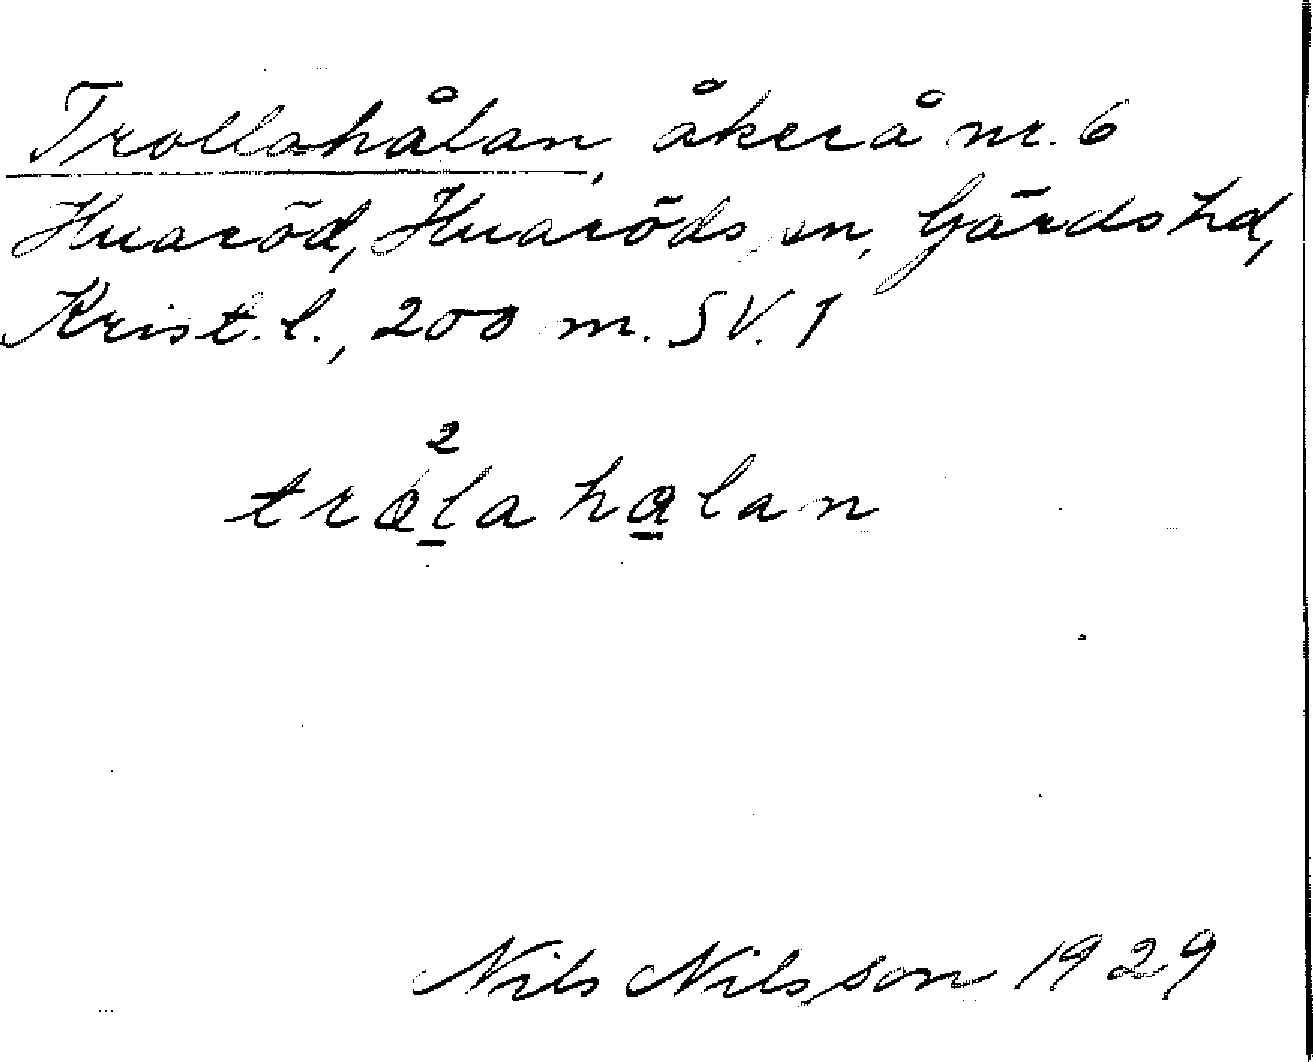 Trollahålan, åker å nr. 6
Huaröd, Huaröds sn, Gärds hd,
Krist. l., 200 m. SV. 1
2
trålahalan
Nils Nilsson 1929